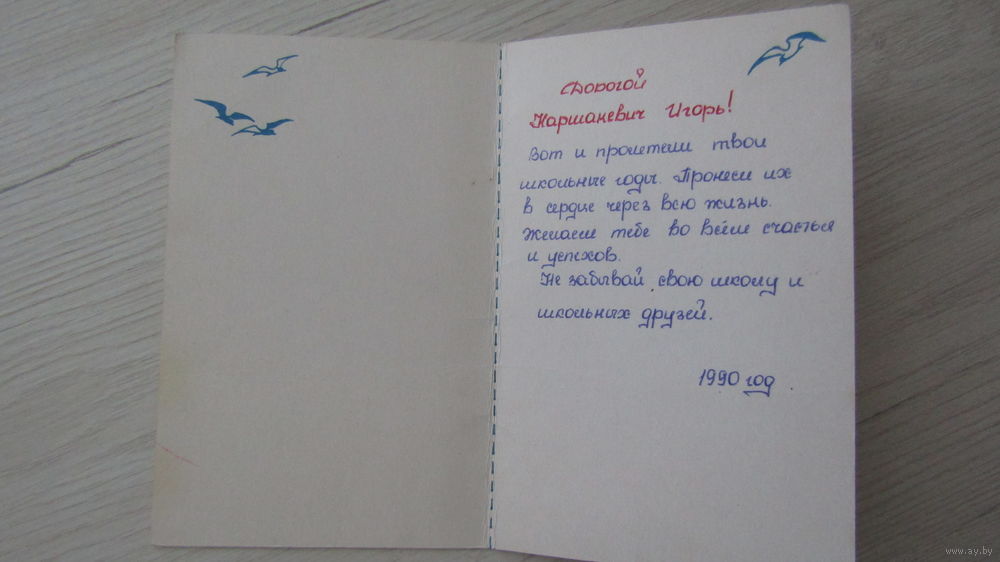 Дорогой
Наршакевич Игорь!
Вот и пролетели твои
школьные годы. Пронеси их
в сердце через всю жизнь.
Желаем тебе во всём счастья
и успехов.
Не забывай свою школу и
школьных друзей.
1990 год.
www.ay.by